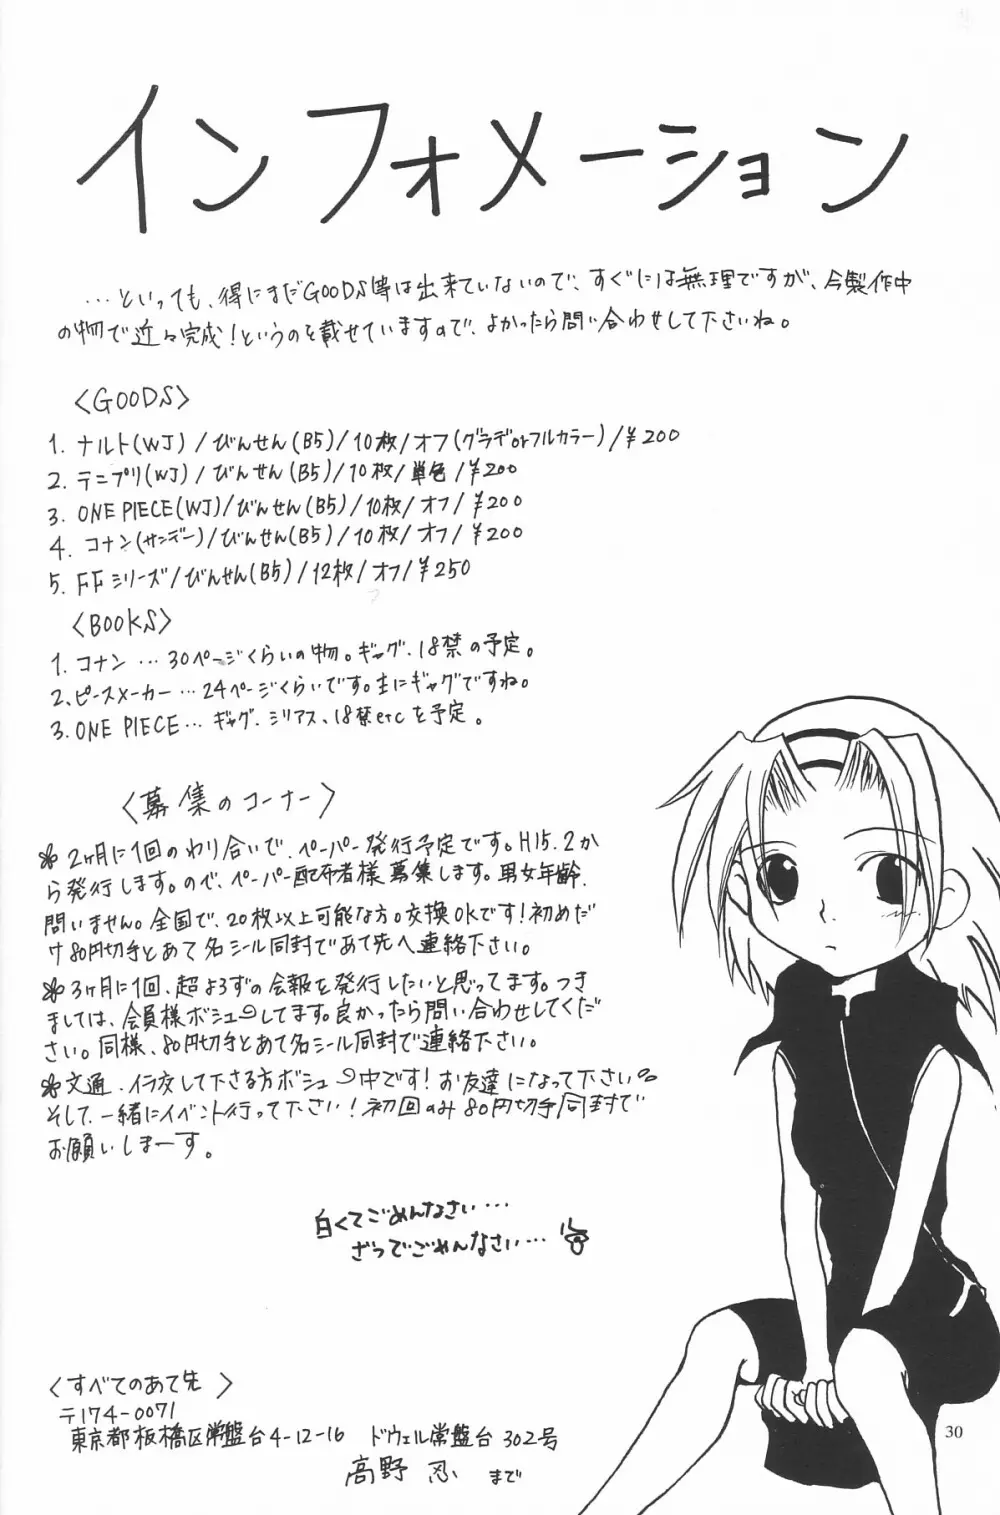 インフォメーション
…といっても、得にまだGOODS等は出来ていないので、すぐには無理ですが、今製作中
の物で近々完成！というのを載せていますので、よかったら問い合わせして下さいね。
〈GOODS〉
1. ナルト(WJ)/びんせん(B5)/10枚/オフ(グラデorフルカラー)/¥200
2. テニプリ(WJ)/びんせん(B5)/10枚/単色/¥200
3. ONE PIECE(WJ)/びんせん(B5)/10枚/オフ/¥200
4. コナン(サンデー)/びんせん(B5)/10枚/オフ/¥200
5. FFシリーズ/びんせん(B5)/12枚/オフ/¥250
〈BOOKS〉
1. コナン…30ページくらいの物。ギャグ、18禁の予定。
2. ピースメーカー…24ページくらいです。主にギャグですね。
3. ONE PIECE…ギャグ、シリアス、18禁etcを予定。
〈募集のコーナー〉
2ヶ月に1回のわり合いで、ペーパー発行予定です。H15.2か
ら発行します。ので、ペーパー配布者様募集します。男女年齢
問いません。全国で、20枚以上可能な方。交換OKです！初めだ
け80円切手とあて名シール同封であて先へ連絡下さい。
3ヶ月に1回、超よろずの会報を発行したいと思ってます。つき
ましては、会員様ボシューしてます。良かったら問い合わせしてくだ
さい。同様、80円切手とあて名シール同封で連絡下さい。
文通、イラ交して下さる方ボシュー中です！お友達になって下さい。
そして、一緒にイベント行って下さい！初回のみ80円切手同封で
お願いしまーす。
白くてごめんなさい…
ざつでごめんなさい…
〈すべてのあて先〉
〒174-0071
東京都板橋区常盤台4-12-16 ドウェル常盤台302号
高野 忍 まで
30